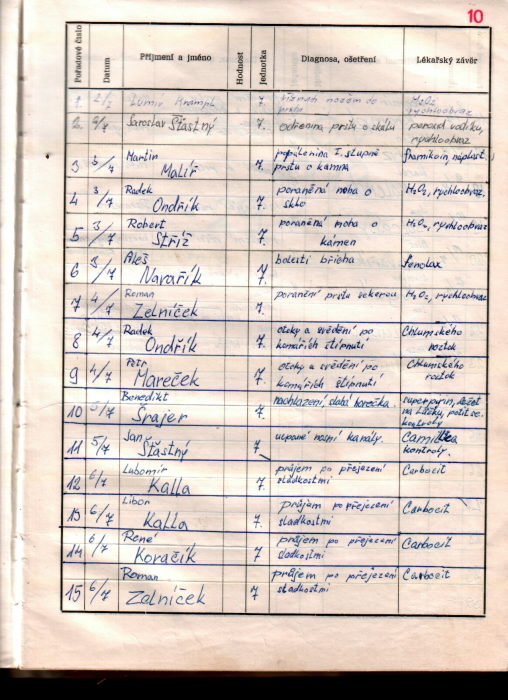 10
Pořadové číslo Datum Příjmení a jméno Hodnost Jednotka Diagnosa, ošetření Lékařský závěr
1. 2/7 Lumír 7. říznutí nožem do H₂O₂
prstu rychloobvaz
2. 2/7 Jaroslav Šťastný 7. odřenina prstu o skálu peroxid vodíku,
rychloobvaz
3 3/7 Martin 7. popálenina I. stupně framikoin, náplast
Malíř prstu o kamna
4 3/7 Radek 7. poraněná noha o H₂O₂, rychloobvaz.
Ondřík sklo
5 3/7 Robert 7. poraněná noha o H₂O₂, rychloobvaz
Stříž kámen
6 3/7 Aleš 7. bolesti břicha fenolax
Navařík
7 4/7 Roman 7. poranění prstu sekerou H₂O₂, rychloobvaz
Zelníček
8 4/7 Radek 7. otoky a svědění po Chlumského
Ondřík komářích štípnutí roztok
9 4/7 Petr 7. otoky a svědění po Chlumského
Mareček komářích štípnutí roztok
10 5/7 Benedikt 7. nachlazení, slabá horečka. superpyrin, ležet
Šrajer na lůžku, potit se.
kontroly
11 5/7 Jan 7 ucpané nosní kanály.
Šťastný kontroly.
12 6/7 Lubomír 7. průjem po přejezení Carbocit
Kalla sladkostmi
13 6/7 Libor 7. průjem po přejezení Carbocit
Kalla sladkostmi
14 6/7 René 7 průjem po přejezení Carbocit
Koračík sladkostmi
15 6/7 Roman 7 průjem po přejezení Carbocit
Zelníček sladkostmi